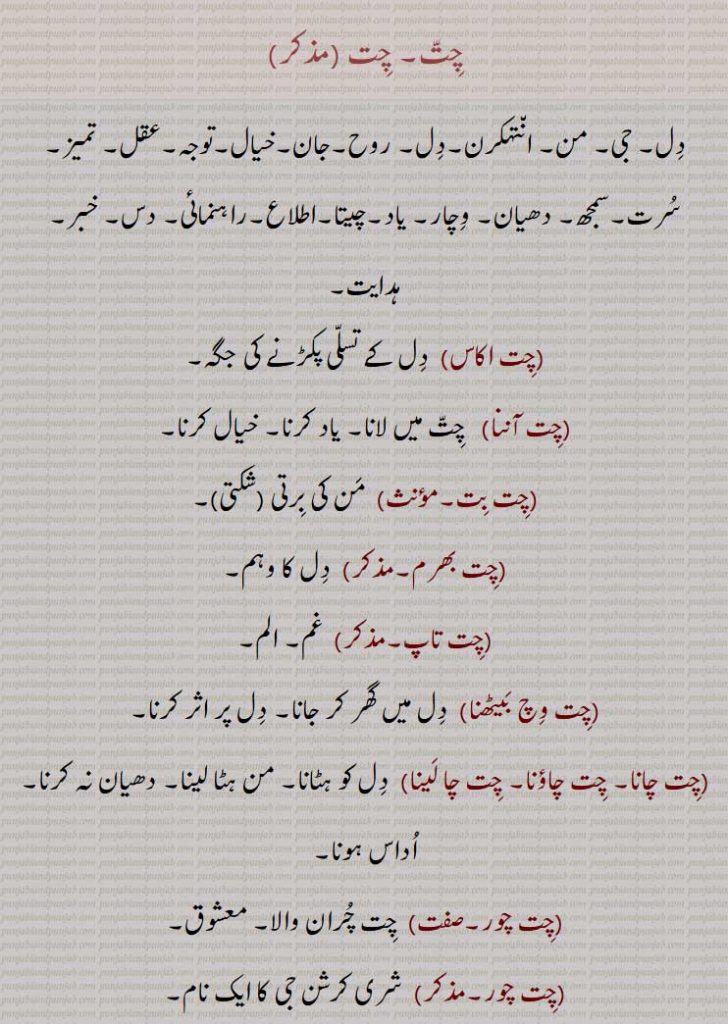 چِتّ۔ چِت (مذکر)
دِل۔ جی۔ من۔ انّتھکرن۔دِل۔ روح۔جان۔خیال۔توجہ۔عقل۔ تمیز۔
سُرت۔سمجھ۔ دھیان۔ وِچار۔ یاد۔چیتا۔اطلاع۔راہنمائی۔ دس۔ خبر۔
ہدایت۔
(چِت اکاس) دِل کے تسلّی پکڑنے کی جگہ۔
(چِت آننا) چِتّ میں لانا۔ یاد کرنا۔ خیال کرنا۔
(چِت بِت۔مؤنث) مَن کی بِرتی (شکتی)۔
(چِت بھرم۔مذکر) دِل کا وہم۔
(چِت تاپ۔مذکر) غم۔ الم۔
(چِت وِچ بَیٹھنا) دِل میں گھر کر جانا۔ دِل پر اثر کرنا۔
(چِت چانا۔ چِت چاؤنا۔ چِت چا لَینا) دِل کو ہٹانا۔ من ہٹا لینا۔ دھیان نہ کرنا۔
اُداس ہونا۔
(چِت چور۔صفت) چِت چُران والا۔ معشوق۔
(چِت چور۔مذکر) شری کرشن جی کا ایک نام۔